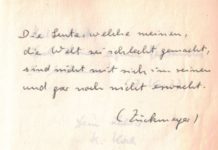 Die Leute, welche meinen,
die Welt sei schlecht gemacht,
sind nicht mit sich im reinen
und gar noch nicht erwacht.
(Zuckmayer)